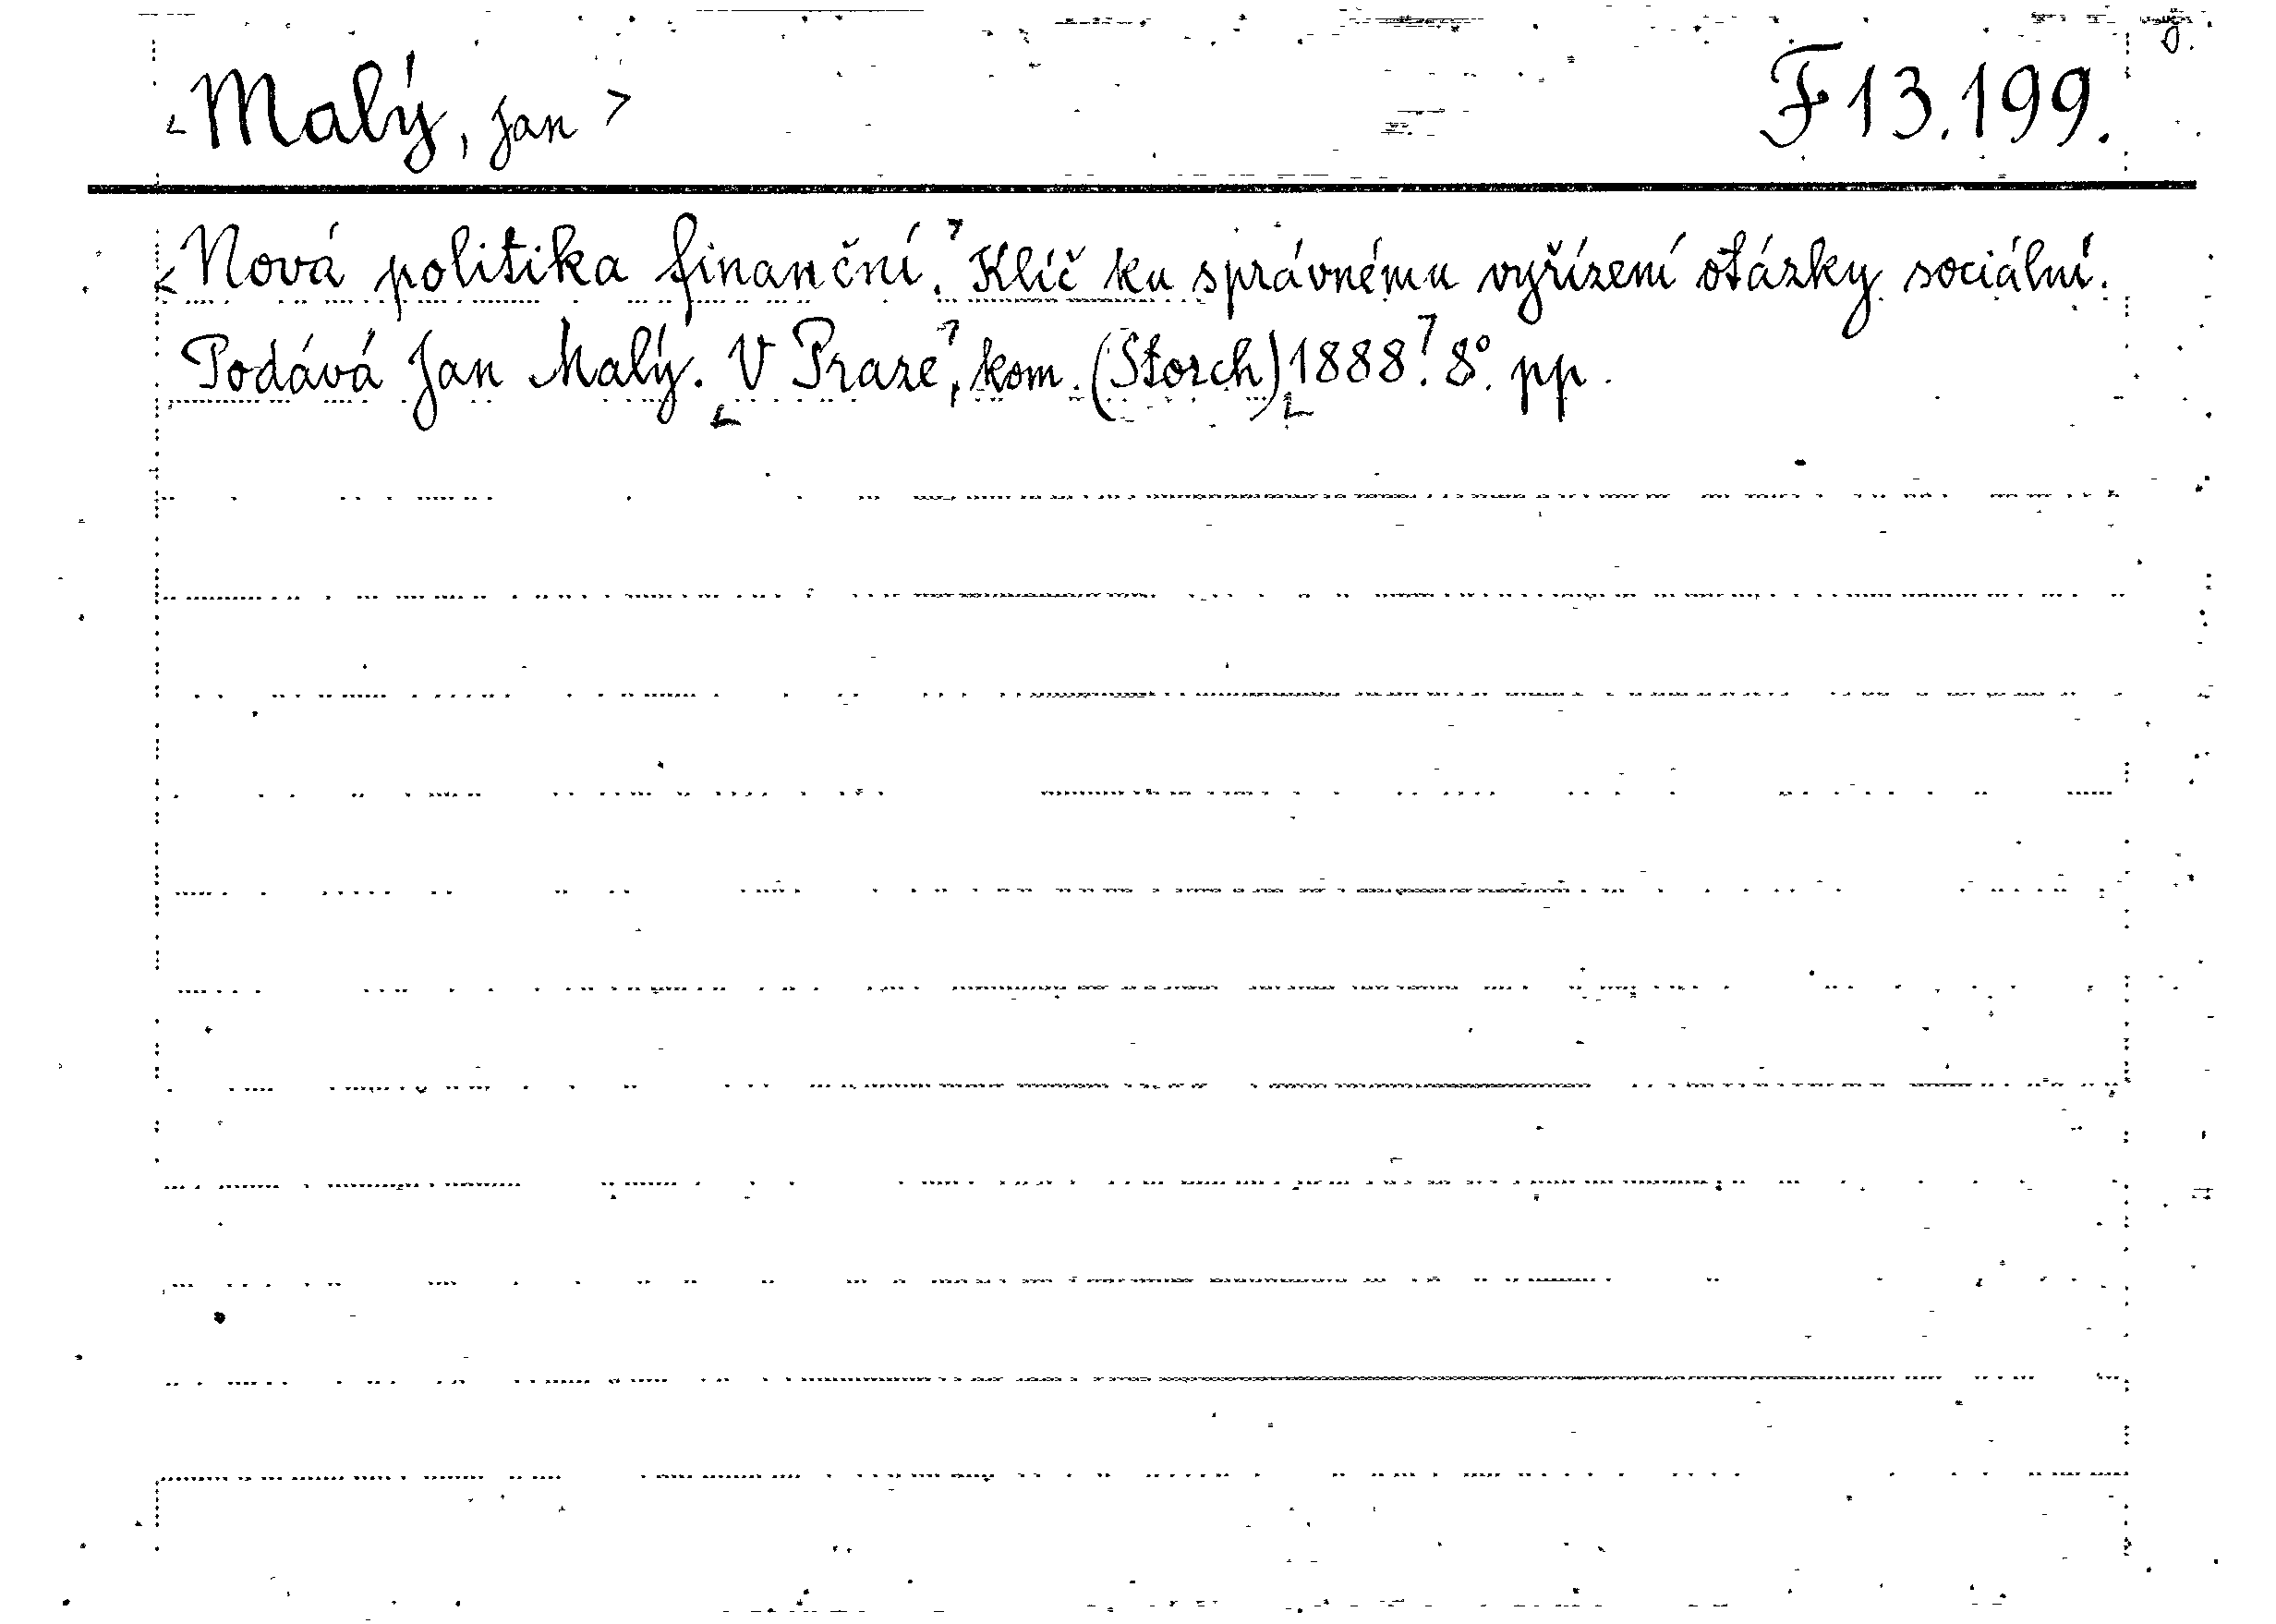 Malý, Jan F 13.199.
Nová politika finanční. Klíč ku správnému vyřízení otázky sociální.
Podává Jan Malý. V Praze, kom. (Storch) 1888. 8°. pp.